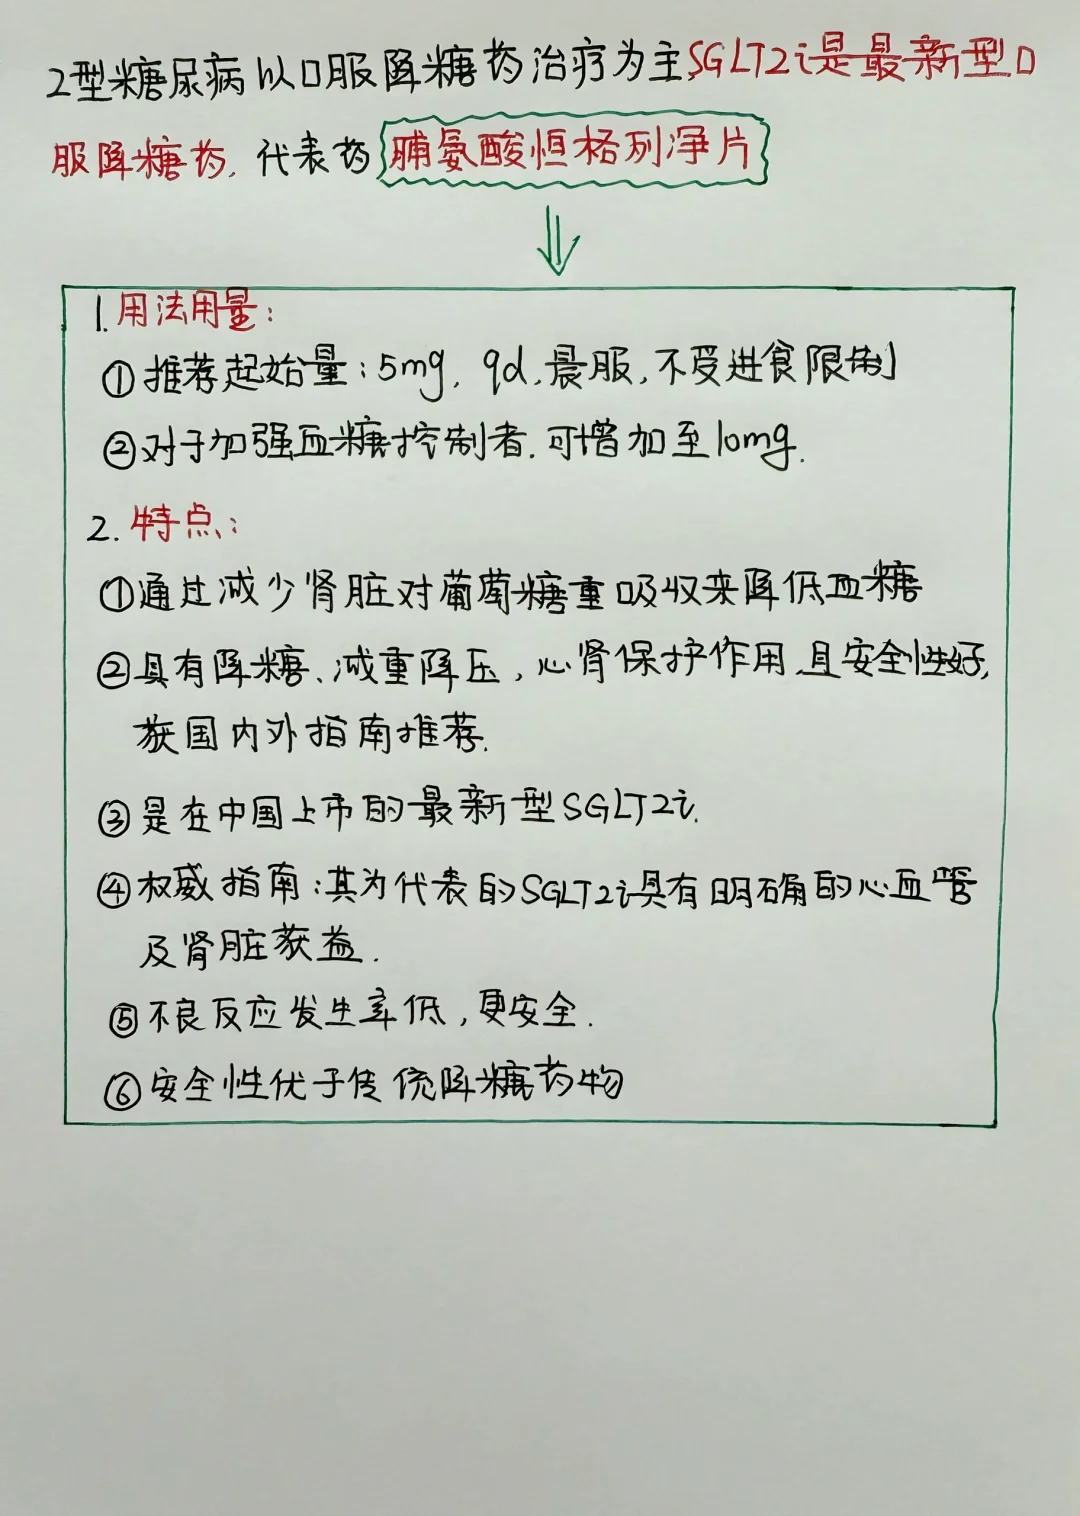 2型糖尿病以口服降糖药治疗为主SGLT2i是最新型口
服降糖药.代表药脯氨酸恒格列净片
1.用法用量:
①推荐起始量:5mg,qd,晨服,不受进食限制
②对于加强血糖控制者.可增加至10mg.
2.特点:
①通过减少肾脏对葡萄糖重吸收来降低血糖
②具有降糖、减重降压,心肾保护作用且安全性好,
获国内外指南推荐.
③是在中国上市的最新型SGLT2i.
④权威指南:其为代表的SGLT2i具有明确的心血管
及肾脏获益.
⑤不良反应发生率低,更安全.
⑥安全性优于传统降糖药物